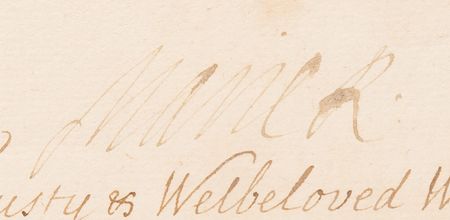 Marie R.
usty & Welbeloved W